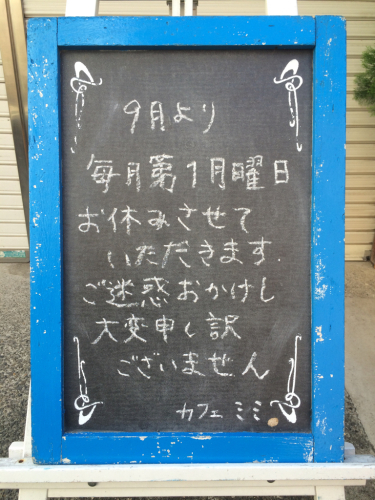 9月より
毎月第1月曜日
お休みさせて
いただきます.
ご迷惑おかけし
大変申し訳
ございません
カフェ ミミ